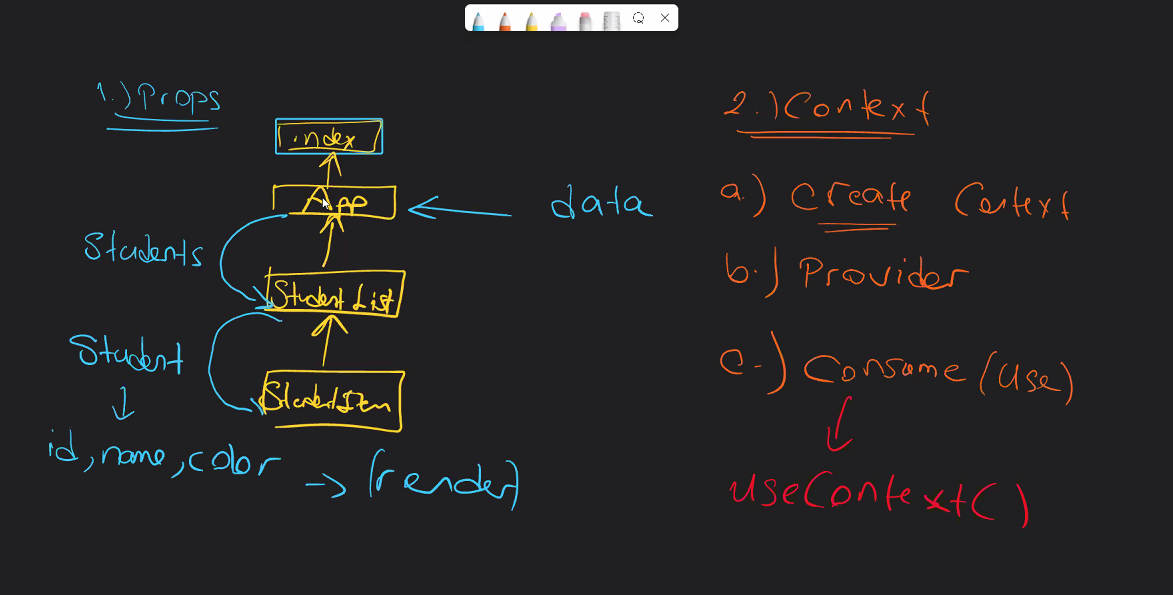 1.) Props
index
App
data
Students
Student List
Student
StudentItem
id, name, color → (render)
2.) Context
a.) Create Context
b.) Provider
c.) Consume (use)
useContext( )